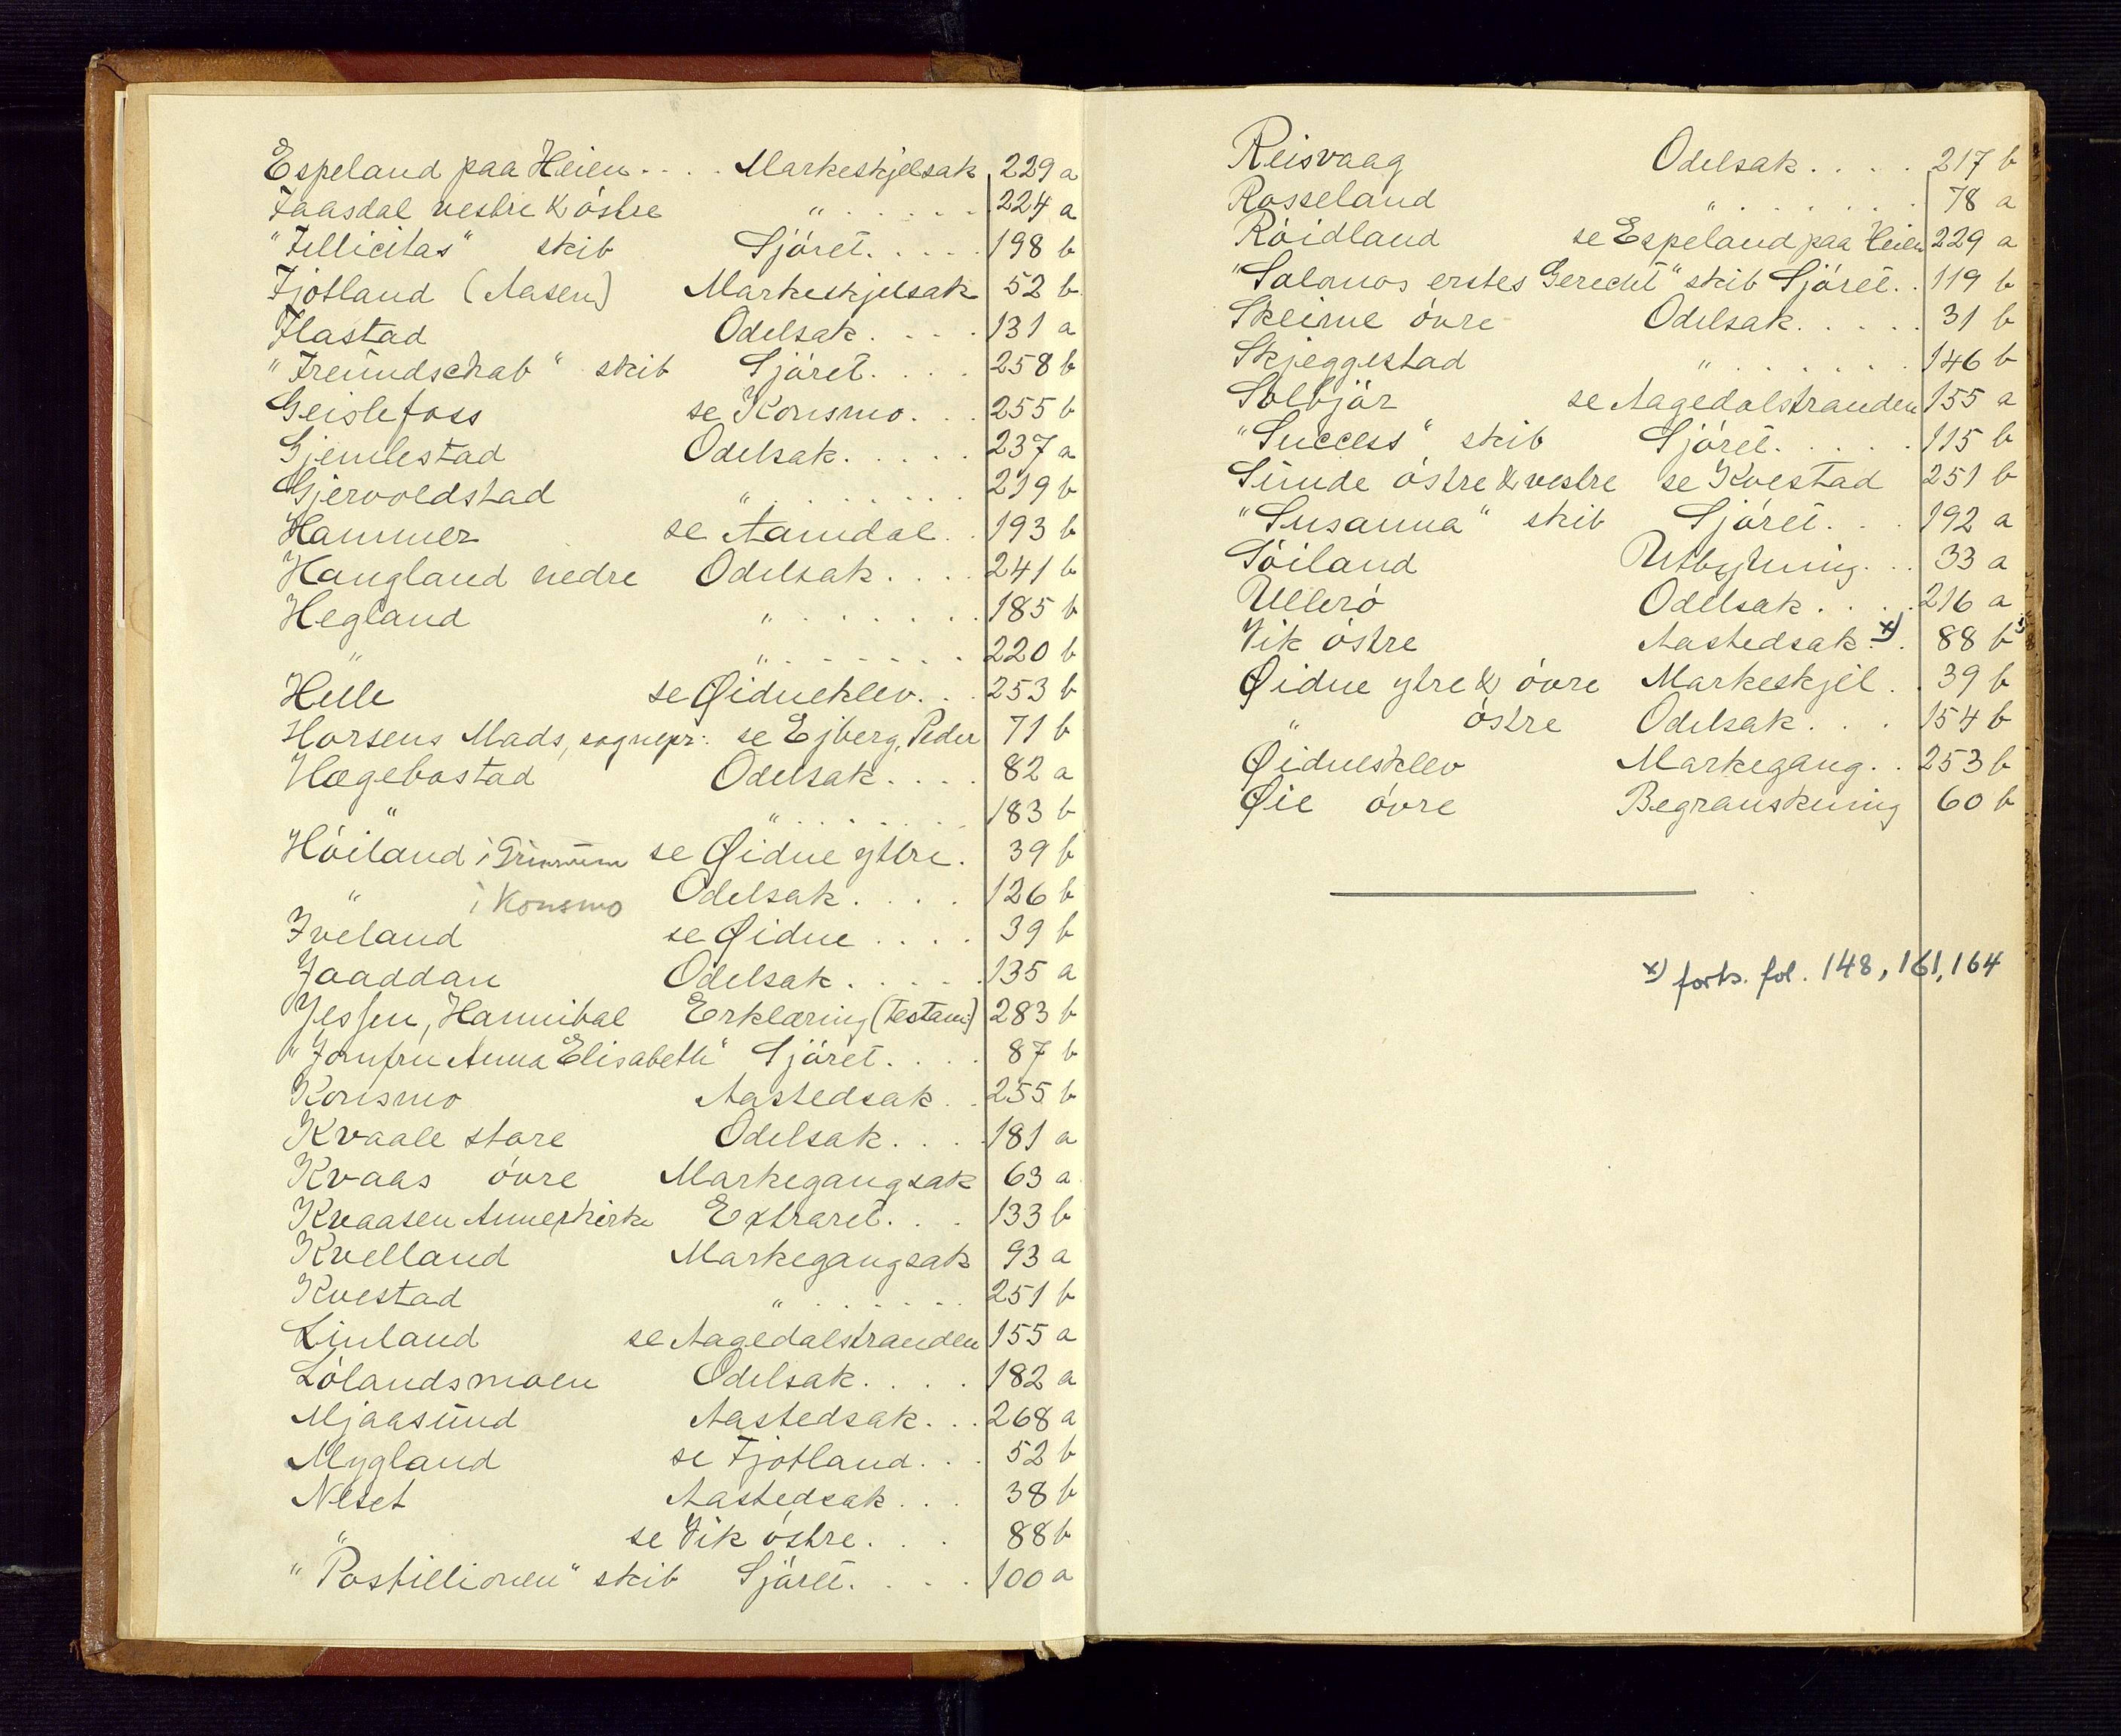 Espeland paa Heien . . . . Markeskjelsak 229 a
Faasdal vestre & östre " . . . . . . 224 a
"Fellicitas" skib Sjöret. . . . . 198 b
Fjotland (Aasen) Markeskjelsak 52 b
Flastad Odelsak. . . . 131 a
"Freundschab" skib Sjöret. . . . 258 b
Geislefoss se Konsmo. . . 255 b
Gjemlestad Odelsak. . . . . 237 a
Gjervoldstad " . . . . . . . 219 b
Hammer se Aamdal . . 193 b
Haugland nedre Odelsak. . . . 241 b
Hegland " . . . . . . . 185 b
" " . . . . . . . 220 b
Helle se Øidneklev. . . 253 b
Horsens Mads, sognepr: se Ejberg, Peder 71 b
Hægebostad Odelsak. . . . 82 a
" " . . . . . . . 183 b
Höiland i Grinum se Øidne yttre. 39 b
" i Konsmo Odelsak. . . . 126 b
Iveland se Øidne . . . . 39 b
Jaaddan Odelsak. . . . . 135 a
Jessen, Hannibal Erklæring (Testam:) 283 b
"Jomfru Anna Elisabeth" Sjöret. . . . 87 b
Konsmo Aastedsak. . 255 b
Kvaale store Odelsak. . . . 181 a
Kvaas övre Markegangsak 63 a
Kvaasen Annexkirke Extraret. . . 133 b
Kvelland Markegangsak 93 a
Kvestad " . . . . . . . 251 b
Linland se Aagedalstranden 155 a
Lölandsmoen Odelsak. . . . 182 a
Mjaasund Aastedsak. . . 268 a
Mygland se Fjotland. . . 52 b
Neset Aastedsak. . . 38 b
" se Vik östre. . . 88 b
"Postillionen" skib Sjöret. . . . 100 a
Reisvaag Odelsak. . . . 217 b
Rosseland " . . . . . . . 78 a
Röidland se Espeland paa Heien 229 a
"Salomos erstes Gerecht" skib Sjöret. . 119 b
Skeime övre Odelsak. . . . . 31 b
Skjeggestad " . . . . . . . 146 b
Solbjör se Aagedalstranden 155 a
"Success" skib Sjöret. . . . . 115 b
Sunde östre & vestre se Kvestad 251 b
"Susanna" skib Sjöret. . . 192 a
Söiland Utbytning. . . 33 a
Ullerö Odelsak. . . . 216 a
Vik östre Aastedsak.x) . 88 b
Øidne ytre & övre Markeskjel . . 39 b
" östre Odelsak. . . . 154 b
Øidnesklev Markegang. . 253 b
Øie övre Begranskning 60 b
x) forts. fol. 148, 161, 164